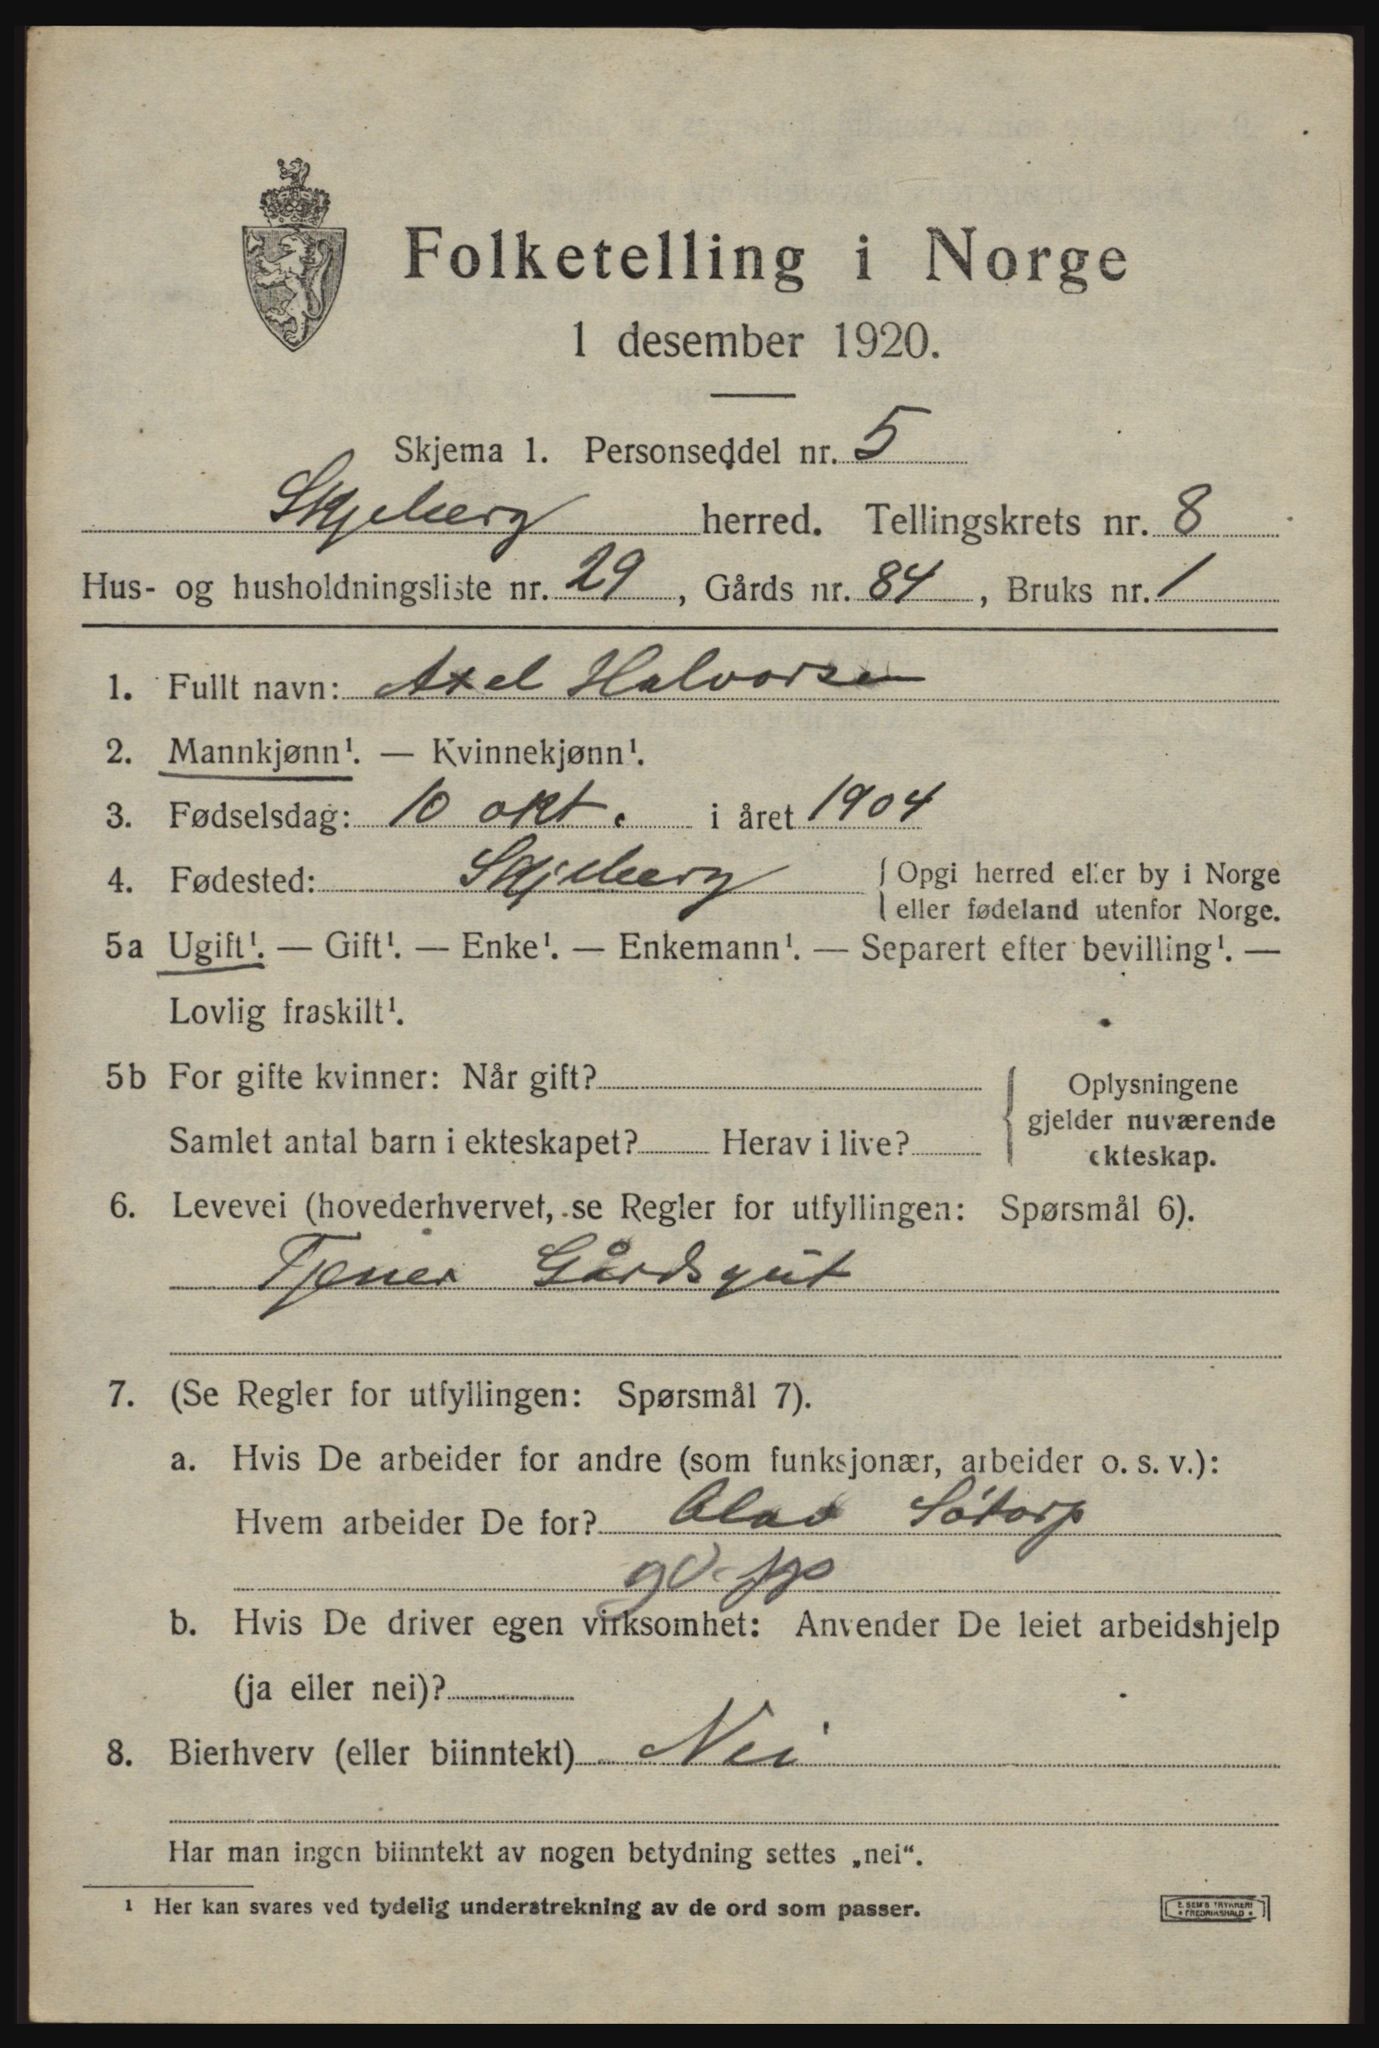 Folketelling i Norge
1 desember 1920.
Skjema 1. Personseddel nr. 5
Skjeberg herred. Tellingskrets nr. 8
Hus- og husholdningsliste nr. 29, Gårds nr. 84, Bruks nr. 1
1. Fullt navn: Axel Halvorsen
2. Mannkjønn¹. — Kvinnekjønn¹.
3. Fødselsdag: 10 okt. i året 1904
4. Fødested: Skjeberg { Opgi herred eller by i Norge
eller fødeland utenfor Norge.
5a Ugift¹. — Gift¹. — Enke¹. — Enkemann¹. — Separert efter bevilling¹. —
Lovlig fraskilt¹.
5b For gifte kvinner: Når gift?
Samlet antal barn i ekteskapet? Herav i live?
{ Oplysningene
gjelder nuværende
ekteskap.
6. Levevei (hovederhvervet, se Regler for utfyllingen: Spørsmål 6).
Tjener Gårdsgut
7. (Se Regler for utfyllingen: Spørsmål 7).
a. Hvis De arbeider for andre (som funksjonær, arbeider o. s. v.):
Hvem arbeider De for? Olav Sótorp
b. Hvis De driver egen virksomhet: Anvender De leiet arbeidshjelp
(ja eller nei)?
8. Bierhverv (eller biinntekt) Nei
Har man ingen biinntekt av nogen betydning settes „nei“.
¹ Her kan svares ved tydelig understrekning av de ord som passer.
E. SEM'S TRYKKERI
* FREDRIKSHALD *